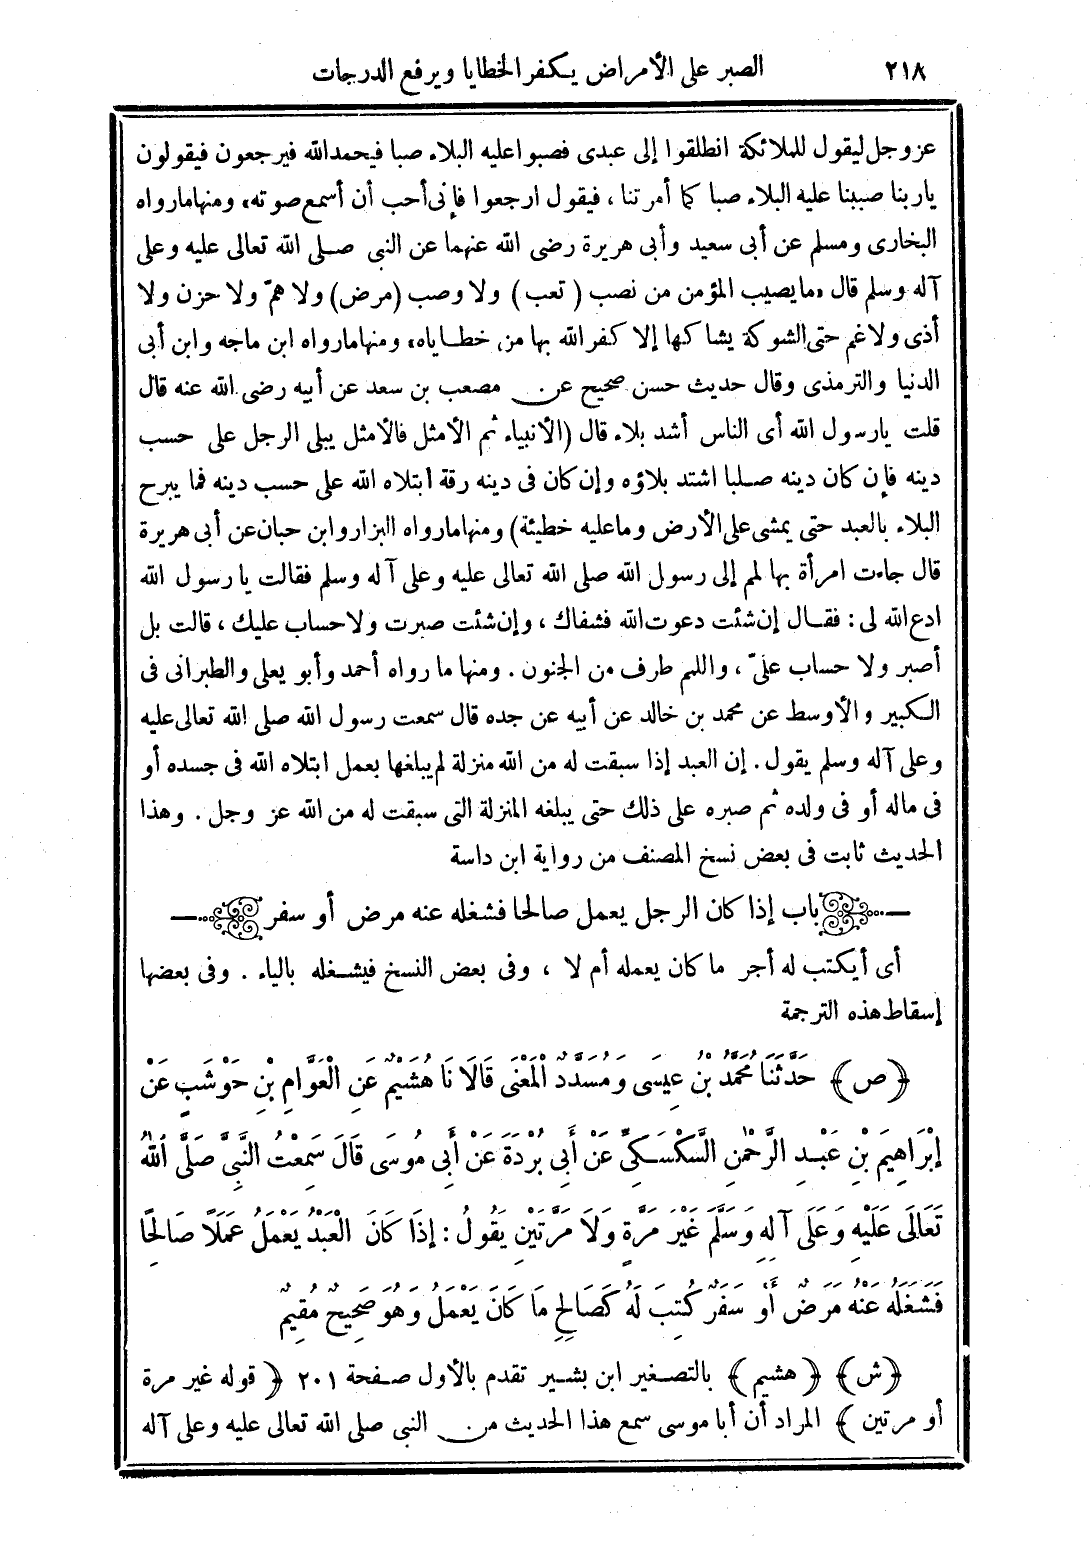 ٢١٨ الصبر على الأمراض يكفر الخطايا ويرفع الدرجات
عز وجل ليقول للملائكة انطلقوا إلى عبدى فصبوا عليه البلاء صبا فيحمد الله فيرجعون فيقولون
ياربنا صببنا عليه البلاء صبا كما أمرتنا ، فيقول ارجعوا فإنى أحب أن أسمع صوته، ومنها مارواه
البخارى ومسلم عن أبى سعيد وأبى هريرة رضى الله عنهما عن النبى صلى الله تعالى عليه وعلى
آله وسلم قال «ما يصيب المؤمن من نصب (تعب) ولا وصب (مرض) ولا همّ ولا حزن ولا
أذى ولا غم حتى الشوكة يشاكها إلا كفر الله بها من خطاياه، ومنها مارواه ابن ماجه وابن أبى
الدنيا والترمذى وقال حديث حسن صحيح عن مصعب بن سعد عن أبيه رضى الله عنه قال
قلت يارسول الله أى الناس أشد بلاء قال (الأنبياء ثم الأمثل فالأمثل يبلى الرجل على حسب
دينه فإن كان دينه صلبا اشتد بلاؤه وإن كان فى دينه رقة ابتلاه الله على حسب دينه فما يبرح
البلاء بالعبد حتى يمشى على الأرض وما عليه خطيئة) ومنها مارواه البزار وابن حبان عن أبى هريرة
قال جاءت امرأة بها لمم إلى رسول الله صلى الله تعالى عليه وعلى آله وسلم فقالت يا رسول الله
ادع الله لى : فقال إن شئت دعوت الله فشفاك ، وإن شئت صبرت ولا حساب عليك ، قالت بل
أصبر ولا حساب علىّ ، واللمم طرف من الجنون . ومنها ما رواه أحمد وأبو يعلى والطبرانى فى
الكبير والأوسط عن محمد بن خالد عن أبيه عن جده قال سمعت رسول الله صلى الله تعالى عليه
وعلى آله وسلم يقول . إن العبد إذا سبقت له من الله منزلة لم يبلغها بعمل ابتلاه الله فى جسده أو
فى ماله أو فى ولده ثم صبره على ذلك حتى يبلغه المنزلة التى سبقت له من الله عز وجل . وهذا
الحديث ثابت فى بعض نسخ المصنف من رواية ابن داسة
باب إذا كان الرجل يعمل صالحا فشغله عنه مرض أو سفر
أى أيكتب له أجر ما كان يعمله أم لا ، وفى بعض النسخ فيشغله بالياء . وفى بعضها
إسقاط هذه الترجمة
﴿ص﴾ حَدَّثَنَا مُحَمَّدُ بْنُ عِيسَى وَمُسَدَّدٌ الْمَعْنَى قَالَا نَا هُشَيْمٌ عَنِ الْعَوَّامِ بْنِ حَوْشَبٍ عَنْ
إِبْرَاهِيمَ بْنِ عَبْدِ الرَّحْمٰنِ السَّكْسَكِيِّ عَنْ أَبِى بُرْدَةَ عَنْ أَبِى مُوسَى قَالَ سَمِعْتُ النَّبِىَّ صَلَّى اللهُ
تَعَالَى عَلَيْهِ وَعَلَى آلِهِ وَسَلَّمَ غَيْرَ مَرَّةٍ وَلَا مَرَّتَيْنِ يَقُولُ : إِذَا كَانَ الْعَبْدُ يَعْمَلُ عَمَلًا صَالِحًا
فَشَغَلَهُ عَنْهُ مَرَضٌ أَوْ سَفَرٌ كُتِبَ لَهُ كَصَالِحِ مَا كَانَ يَعْمَلُ وَهُوَ صَحِيحٌ مُقِيمٌ
﴿ش﴾ ﴿هشيم﴾ بالتصغير ابن بشير تقدم بالأول صفحة ٢٠١ ﴿قوله غير مرة
أو مرتين﴾ المراد أن أبا موسى سمع هذا الحديث من النبى صلى الله تعالى عليه وعلى آله